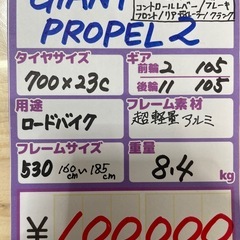 GIANT
PROPEL 2
コントロールレバー/ブレーキ
フロント/リアディレーラー/クランク
タイヤサイズ
700×23c
ギア
前輪 2 105
後輪 11 105
用途
ロードバイク
フレーム素材
超軽量アルミ
フレームサイズ
530 160cm〜185cm
重量
8.4kg
¥100000